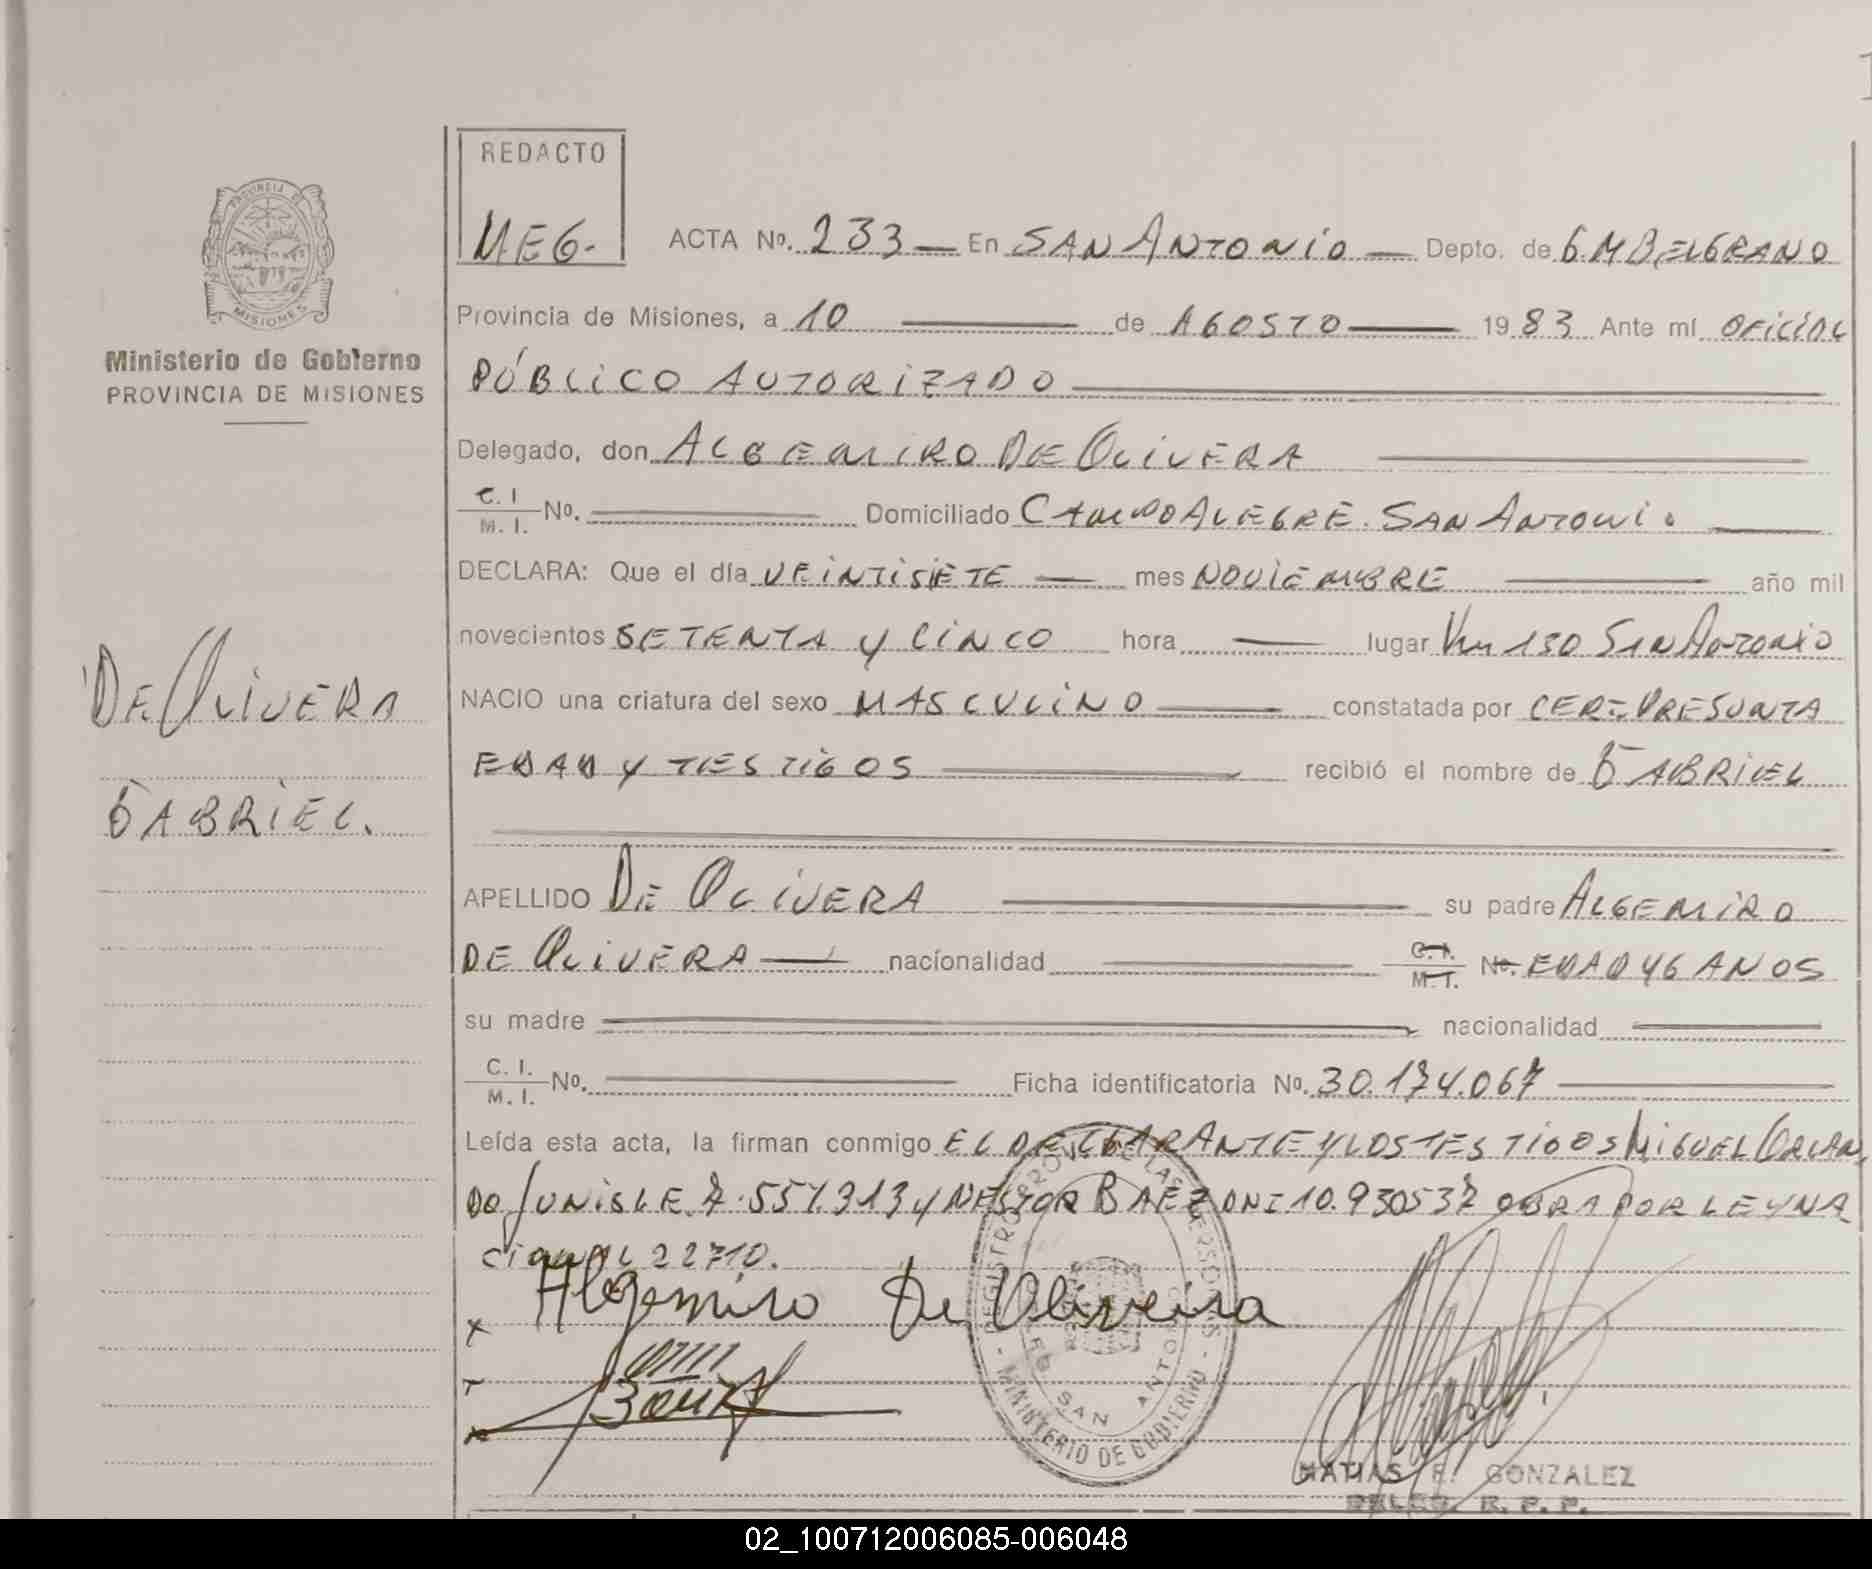 REDACTO
MEG.
ACTA No. 233 En SAN ANTONIO Depto. de G. M BELGRANO
Provincia de Misiones, a 10 de AGOSTO 19 83 Ante mí OFICIAL
PÚBLICO AUTORIZADO
Delegado, don ALGEMIRO DE OLIVERA
C. I
M. I. No. Domiciliado CAMPO ALEGRE. SAN ANTONIO
DECLARA: Que el día VEINTISIETE mes NOVIEMBRE año mil
novecientos SETENTA Y CINCO hora lugar Km 130 SAN ANTONIO
NACIO una criatura del sexo MASCULINO constatada por CERT. PRESUNTA
EDAD Y TESTIGOS recibió el nombre de GABRIEL
APELLIDO DE OLIVERA su padre ALGEMIRO
DE OLIVERA nacionalidad C. I. M. I. No. EDAD 46 ANOS
su madre nacionalidad
C. I.
M. I. No. Ficha identificatoria No. 30.174.067
Leída esta acta, la firman conmigo EL DECLARANTE Y LOS TESTIGOS MIGUEL ORLAN
DO 7.557.313 y NESTOR BAEZ DNI 10.930537 OBRA POR LEY NA
CIONAL 22710.
Algemiro De Oliveira
MATIAS F. GONZALEZ
DELEG. R. P. P.
REGISTRO PROV. DE LAS PERSONAS
SAN ANTONIO
MINISTERIO DE GOBIERNO
PROVINCIA DE
MISIONES
Ministerio de Gobierno
PROVINCIA DE MISIONES
DE OLIVERA
GABRIEL.
02_100712006085-006048